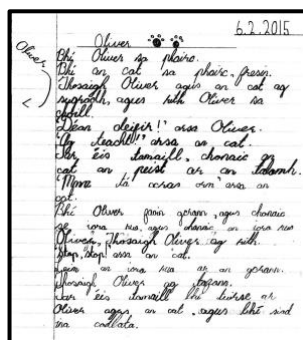 6.2.2015
Oliver
Oliver
Bhí Oliver sa pháirc.
Bhí an cat sa pháirc, freisin.
Thosaigh Oliver agus an cat ag
súgradh, agus rith Oliver sa
choill.
"Déan deifir!" arsa Oliver.
"Ag teacht!" arsa an cat.
Tar éis tamaill, chonaic an
cat an péist ar an talamh.
"Mmm tá ocras orm" arsa an
cat.
Bhí Oliver faoin gcrann, agus chonaic
sé iora rua, agus chonaic an iora rua
Oliver. Thosaigh Oliver ag rith.
Stop, stop! arsa an cat.
Léim an iora rua ar an gcrann.
Thosaigh Oliver ag tafann.
Tar éis tamaill bhí tuirse ar
Oliver agus an cat, agus bhí siad
ina codlata.